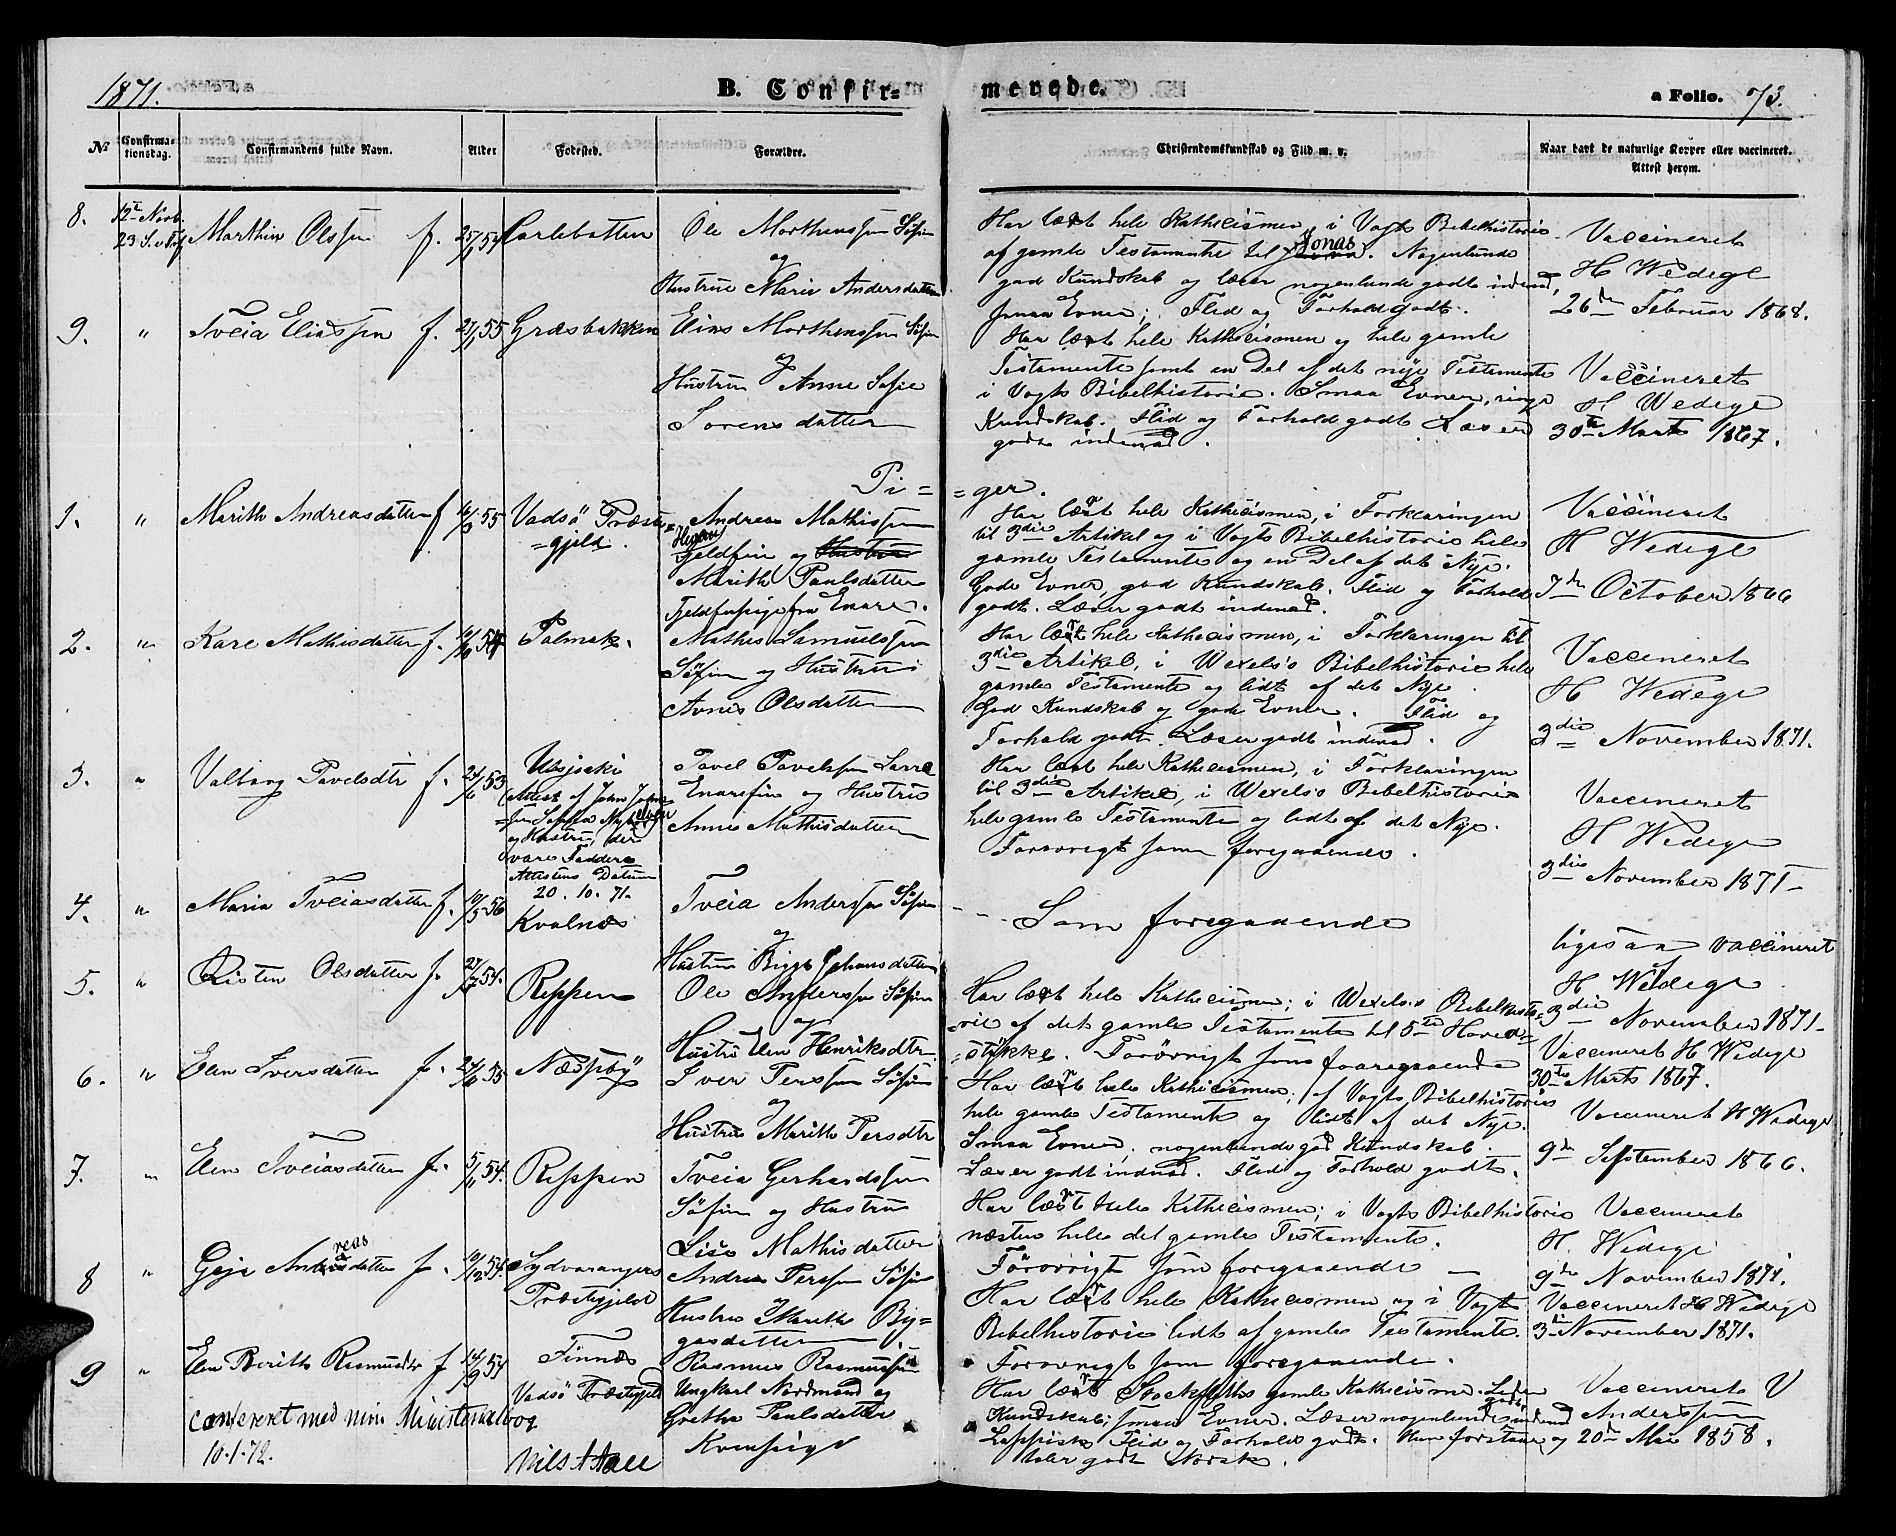 1871.
B. Confir=
merede.
a Folio. 73.
№
Confirma-
tionsdag.
Confirmandens fulde Navn.
Alder
Fødested.
Forældre.
Christendomskundskab og Flid m. v.
Naar havt de naturlige Kopper eller vaccineret.
Attest herom.
8.
12te Novb.
23 S. e. Tref
Marthin Olssen f.
Carlebotten
Ole Morthenssen Søfin
og
Hustrue Marie Andersdatter
Har lært hele Kathecismen, i Vogts Bibelhistorie
af gamle Testamente til Jonas. Nogenlunde
god Kundskab og læser nogenlunde godt indenad,
smaa Evner; Flid og Forhold godt.
Vaccineret
H Wedege
26de Februar 1868.
9.
"
Tveia Eliassen f.
21/1 55
Græsbakken
Elias Morthenssen Søfin
og
Hustrue Anne Sofie
Sorensdatter
Har lært hele Kathecismen og hele gamle
Testamente samt en Del af det nye Testamente
i Vogts Bibelhistorie. Smaa Evner, ringe
Kundskab. Flid og Forhold godt Læser
godt indenad.
Vaccineret
H Wedege
30te Marts 1867.
Pi= =ger.
1.
"
Marith Andreasdatter f
16/3 55
Vadsö Præste=
=gjeld.
Andreas Mathissen
Fjeldfin og Hustrue
Marith Paulsdatter
Fjeldfinpige fra Enare.
Har lært hele Kathecismen, i Forklaringen
til 3die Artikel og i Vogts Bibelhistorie hele
gamle Testamente og en Del af det Nye.
Gode Evner, god Kundskab. Flid og Forhold
godt. Læser godt indenad.
Vaccineret
H Wedege
7de October 1866
2.
"
Kare Mathisdatter f.
Polmak.
Mathis Samuelssen
Søfin og Hustrue
Avnes Olsdatter
Har lært hele Kathecismen, i Forklaringen til
3die Artikel, i Wexels's Bibelhistorie hele
gamle Testamente og lidt af det Nye.
God Kundskab og gode Evner. Flid og
Forhold godt. Læser godt indenad.
Vaccineret
H Wedege
3die November 1871.
3.
"
Valborg Pavelsdtr f.
24/6 53
Utsjocki
(Attest af John
og Hustru, der
vare Faddere
Attestens Datum
20. 10. 71.
Pavel Pavelssen Sarre
Enarefin og Hustrue
Anne Mathisdatter
Har lært hele Kathecismen, i Forklaringen
til 3die Artikel, i Wexels's Bibelhistorie
hele gamle Testamente og lidt af det Nye.
Forøvrigt som foregaaende.
Vaccineret
H Wedege
3die November 1871
4.
"
Maria Tveiasdatter f.
10/5 56
Kvalnæs
Tveia Anderssen Søfin
og
Hustrue Bigge Johansdatter
Som foregaaende
ligesaa vaccineret
H Wedege
3die November 1871
5.
"
Kristen Olsdatter f.
Reppen
Ole Anderssen Søfin
og
Hustru Elen Henriksdtr
Har lært hele Kathecismen; i Wexels's Bibelhisto=
=rie af det gamle Testamente til 5te Hoved=
=stykke. Forøvrigt som foregaaende
Vaccineret H Wedege
30te Marts 1867.
6.
"
Elen Iversdatter f.
24/6 55
Næsseby
Iver Perssen Søfin
og
Hustrue Marith Persdtr
Har lært hele Kathecismen; af Vogts Bibelhistorie
hele gamle Testamente og lidt af det Nye.
Smaa Evner, nogenlunde god Kundskab.
Læser godt indenad. Flid og Forhold godt.
Vaccineret H Wedege
9de September 1866.
7.
"
Elen Tveiasdatter f.
5/11 54.
Reppen
Tveia Gerhardssen
Søfin og Hustrue
Lise Mathisdatter
Har lært hele Kathecismen; i Vogts Bibelhistorie
næsten hele det gamle Testamente.
Forøvrigt som foregaaende
Vaccineret
H. Wedege
9de November 1871.
8
"
Gaja Andreasdatter f.
10/12 54.
Sydvaranger
Præstegjeld
Andreas Perssen Søfin
Hustrue Marith By=
gasdatter
Har lært hele Kathecismen og i Vogts
Bibelhistorie lidt af gamle Testamente.
Forøvrigt som foregaaende.
Vaccineret H Wedege
3die November 1871.
9
"
Elen Berith Rasmusdtr f
14/9 54
Finnæs
Vadsö Præstegjeld
Rasmus Rasmussen
Ungkarl Nordmand og
Grethe Paulsdatter
Kvenpige
Har lært Stockfleths gamle Kathecisme. Liden
Kundskab; smaa Evner. Læser nogenlunde godt indenad
Lappisk. Flid og Forhold godt. Hun forstaar og
taler godt Norsk.
Vaccineret V
Anderssen
20de Mai 1858.
confereret med min Ministerialbog
10-1-72.
Nils Aall